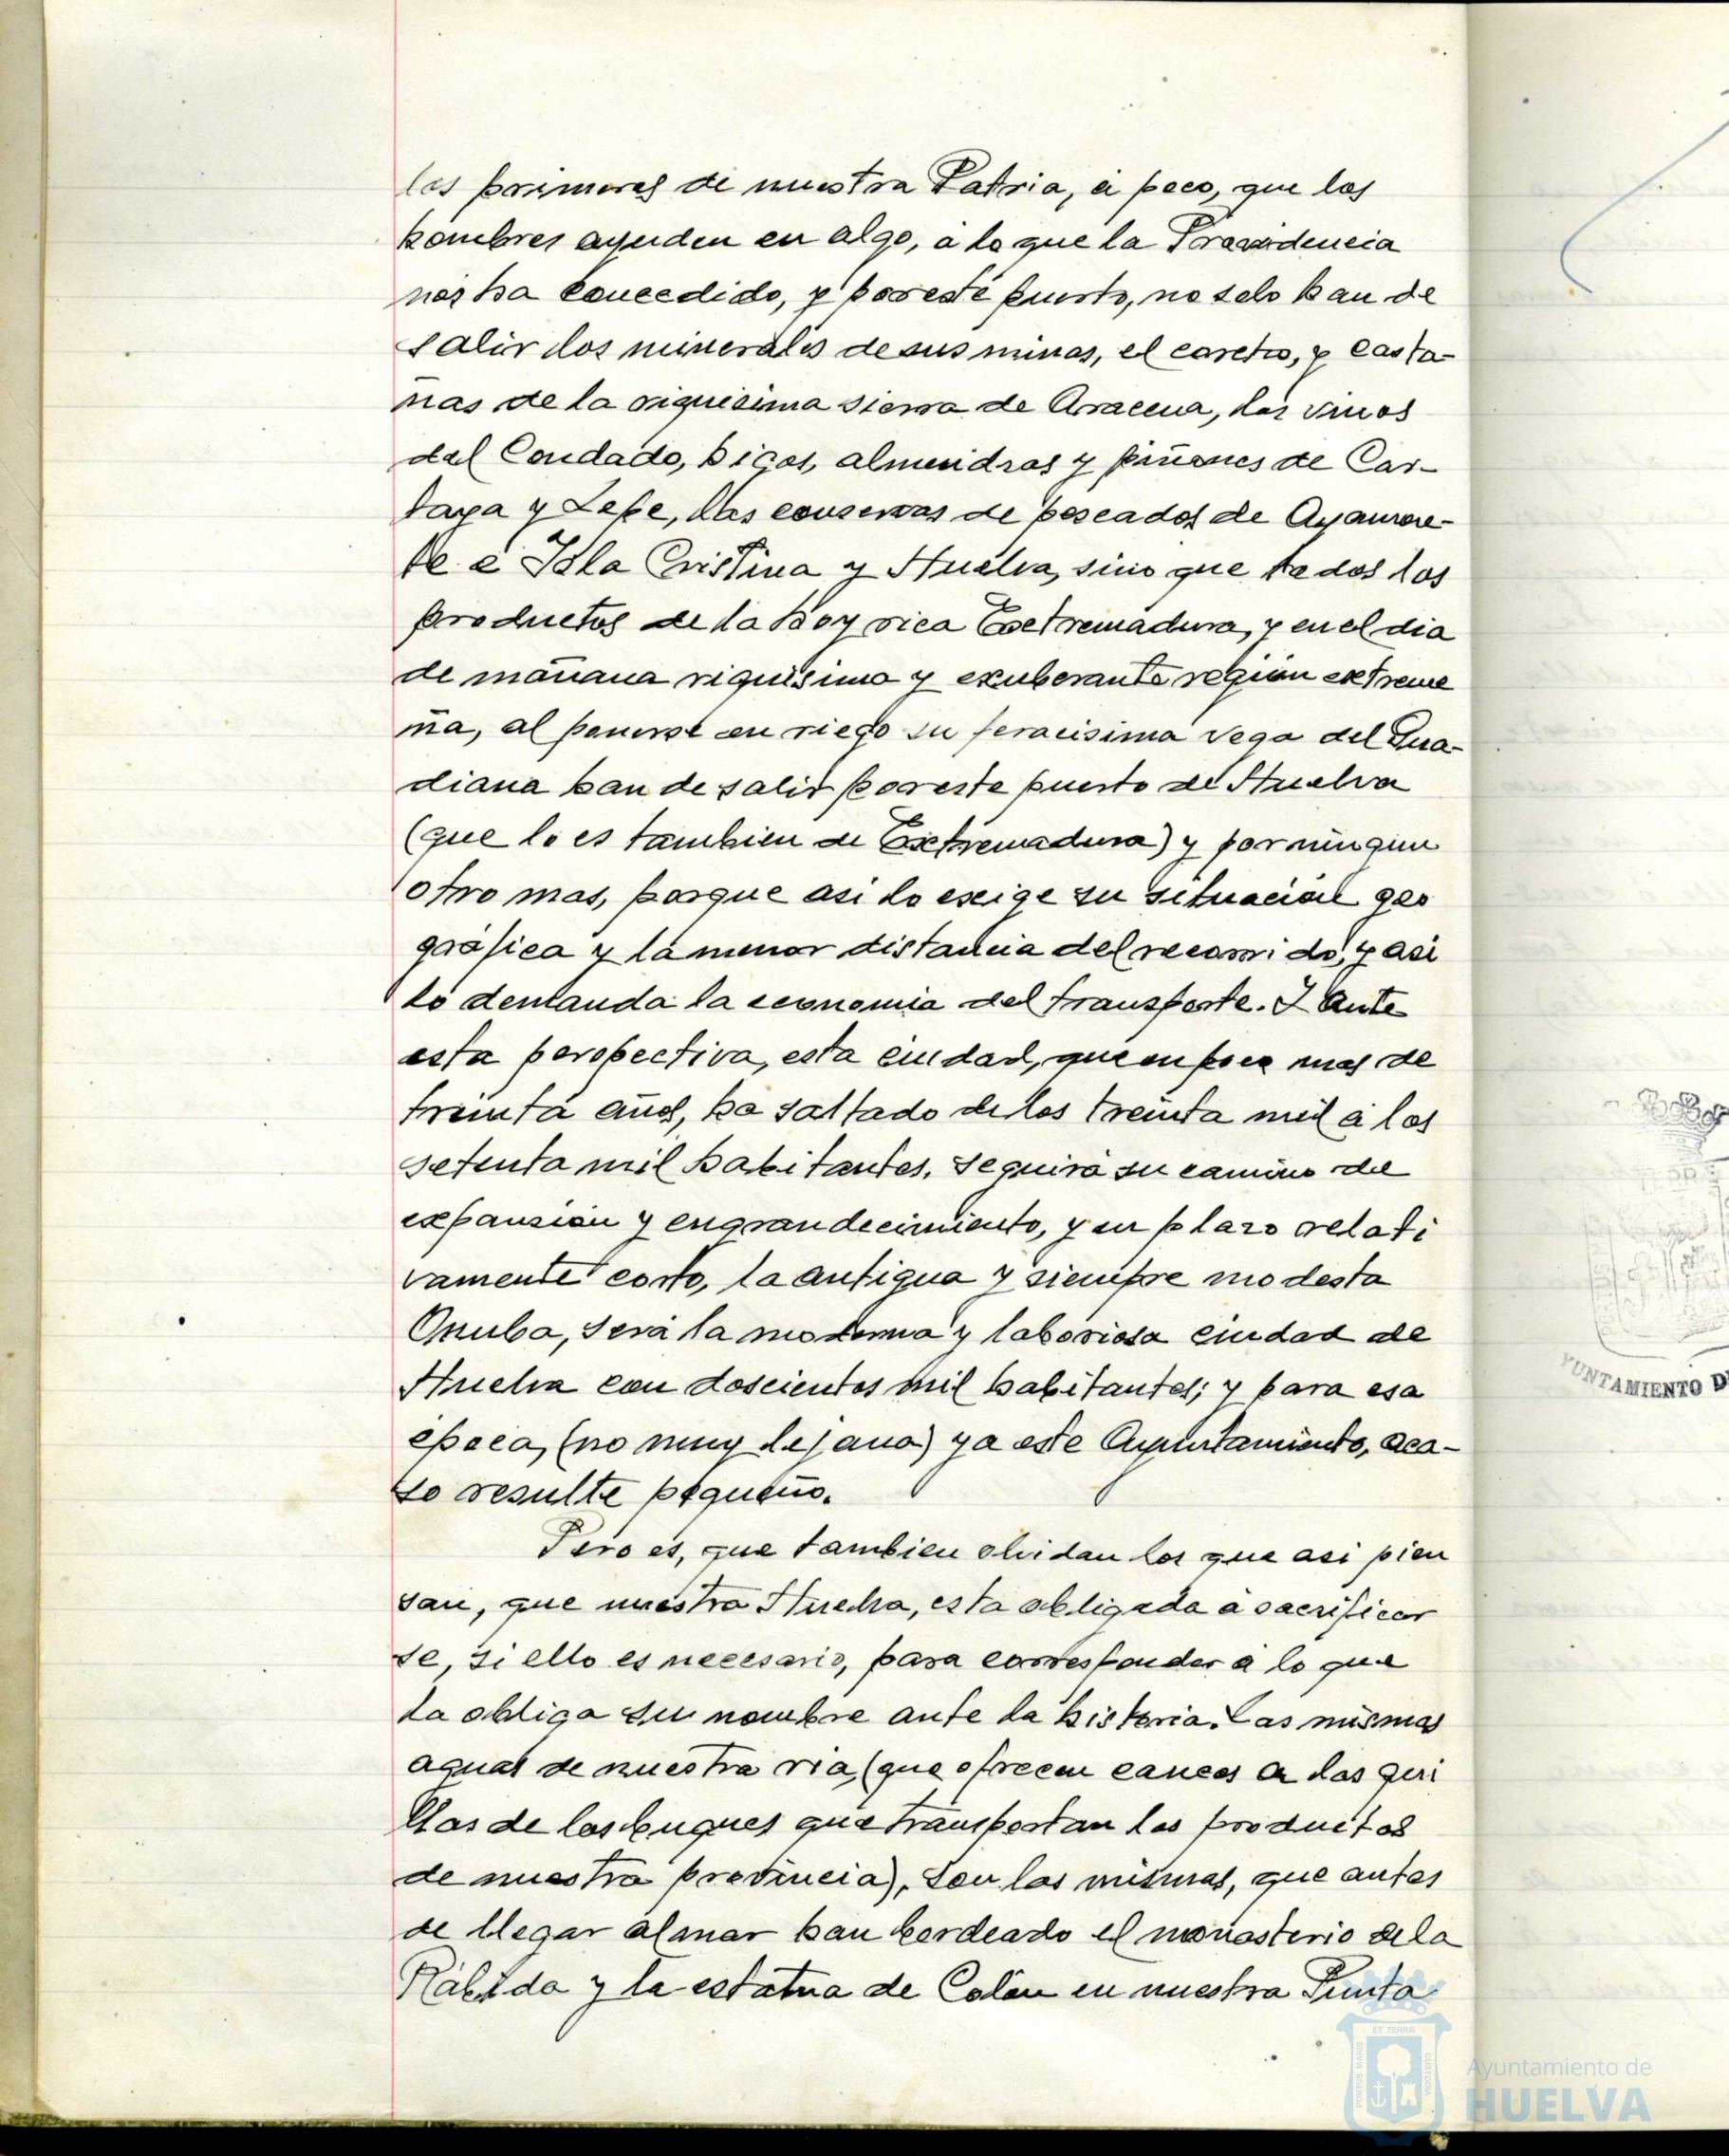 los primeros de nuestra Patria, á poco, que los
hombres ayuden en algo, a lo que la Providencia
nos ha concedido, y por este puerto, no solo han de
salir los minerales de sus minas, el corcho, y casta-
ñas de la riquisima sierra de Aracena, los vinos
del Condado, higos, almendras y piñones de Car-
taya y Lepe, las conservas de pescados de Ayamon-
te é Isla Cristina y Huelva, sino que todos los
productos de la hoy rica Extremadura, y en el dia
de mañana riquisima y exuberante region extreme
ña, al ponerse en riego su feracisima vega del Gua-
diana han de salir por este puerto de Huelva
(que lo es tambien de Extremadura) y por ningun
otro mas, porque asi lo exige su situacion geo
grafica y la menor distancia del recorrido, y asi
lo demanda la economia del transporte. Y ante
esta perspectiva, esta ciudad, que en poco mas de
treinta años, ha saltado de los treinta mil á los
setenta mil habitantes, seguirá su camino de
expansion y engrandecimiento, y en plazo relati
vamente corto, la antigua y siempre modesta
Onuba, será la moderna y laboriosa ciudad de
Huelva con doscientos mil habitantes; y para esa
epoca, (no muy lejana) ya este Ayuntamiento, aca-
so resulte pequeño.
Pero es, que tambien olvidan los que asi pien
san, que nuestra Huelva, esta obligada a sacrificar
se, si ello es necesario, para corresponder a lo que
la obliga su nombre ante la historia. Las mismas
aguas de nuestra ria, (que ofrecen cauces a las qui
llas de los buques que transportan los productos
de nuestra provincia), son las mismas, que antes
de llegar al mar han bordeado el monasterio de la
Rábida y la estatua de Colón en nuestra Punta
ET TERRÆ
PORTUS MARIS
CUSTODIA
Ayuntamiento de
HUELVA
UNTAMIENTO D